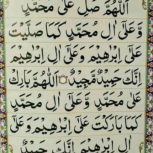 اَللّٰهُمَّ صَلِّ عَلٰى مُحَمَّدٍ
وَّعَلٰٓى اٰلِ مُحَمَّدٍ كَمَا صَلَّيْتَ
عَلٰٓى اِبْرٰهِيْمَ وَعَلٰٓى اٰلِ اِبْرٰهِيْمَ
اِنَّكَ حَمِيْدٌ مَّجِيْدٌ اَللّٰهُمَّ بَارِكْ
عَلٰى مُحَمَّدٍ وَّعَلٰٓى اٰلِ مُحَمَّدٍ
كَمَا بَارَكْتَ عَلٰٓى اِبْرٰهِيْمَ وَعَلٰٓى
اٰلِ اِبْرٰهِيْمَ اِنَّكَ حَمِيْدٌ